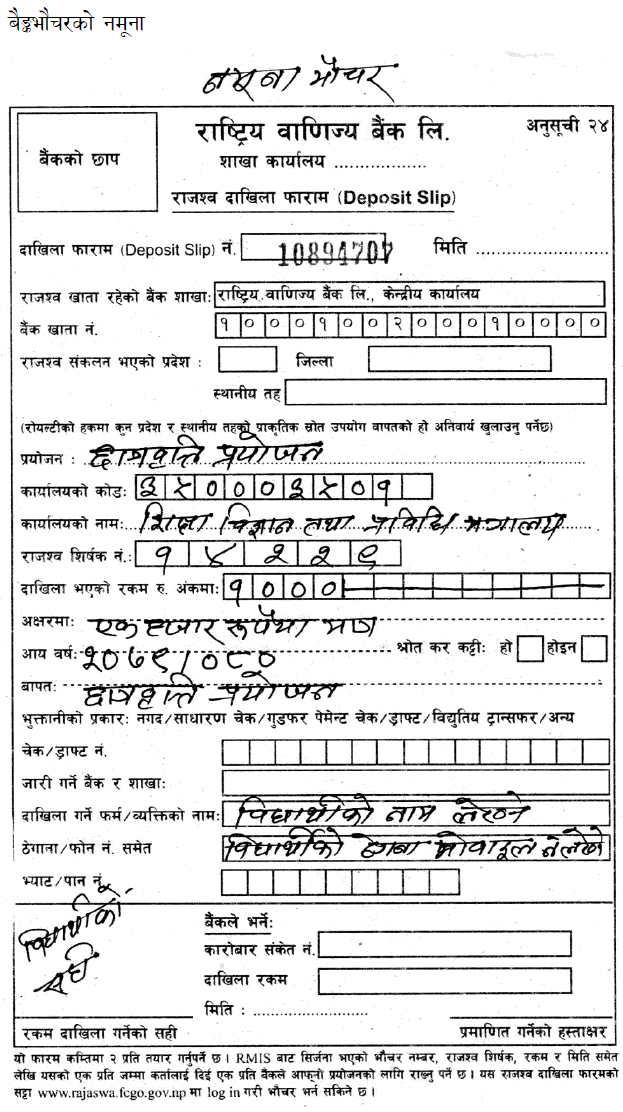 बैङ्कभौचरको नमूना
नमूना भौचर
बैंकको छाप
राष्ट्रिय वाणिज्य बैंक लि.
अनुसूची २४
शाखा कार्यालय ..................
राजश्व दाखिला फाराम (Deposit Slip)
दाखिला फाराम (Deposit Slip) नं. 10894707 मिति ..........................
राजश्व खाता रहेको बैंक शाखा: राष्ट्रिय वाणिज्य बैंक लि., केन्द्रीय कार्यालय
बैंक खाता नं. १ ० ० ० १ ० ० २ ० ० ० १ ० ० ० ०
राजश्व संकलन भएको प्रदेश : जिल्ला
स्थानीय तह
(रोयल्टीको हकमा कुन प्रदेश र स्थानीय तहको प्राकृतिक स्रोत उपयोग वापतको हो अनिवार्य खुलाउनु पर्नेछ)
प्रयोजन : छात्रवृत्ति प्रयोजन
कार्यालयको कोड: ३ ५ ० ० ० ३ ५ ० १
कार्यालयको नाम: शिक्षा विज्ञान तथा प्रविधि मन्त्रालय
राजश्व शिर्षक नं.: १ ४ २ २ ९
दाखिला भएको रकम रु. अंकमा: १ ० ० ०
अक्षरमा: एक हजार रूपैया मात्र
आय वर्ष: २०७९/०८० श्रोत कर कट्टी: हो होइन
बापत: छात्रवृत्ति प्रयोजन
भुक्तानीको प्रकार: नगद/साधारण चेक/गुडफर पेमेन्ट चेक/ड्राफ्ट/विद्युतिय ट्रान्सफर/अन्य
चेक/ड्राफ्ट नं.
जारी गर्ने बैंक र शाखा:
दाखिला गर्ने फर्म/व्यक्तिको नाम: विद्यार्थीको नाम लेख्ने
ठेगाना/फोन नं. समेत विद्यार्थीको ठेगाना मोवाइल नं लेख्ने
भ्याट/पान नं.
विद्यार्थीको
सही
बैंकले भर्ने:
कारोबार संकेत नं.
दाखिला रकम
मिति : ..........................
रकम दाखिला गर्नेको सही
प्रमाणित गर्नेको हस्ताक्षर
यो फारम कम्तिमा २ प्रति तयार गर्नुपर्ने छ । RMIS बाट सिर्जना भएको भौचर नम्बर, राजश्व शिर्षक, रकम र मिति समेत
लेखि यसको एक प्रति जम्मा कर्तालाई दिई एक प्रति बैंकले आफ्नो प्रयोजनको लागि राख्नु पर्ने छ । यस राजश्व दाखिला फारमको
सट्टा www.rajaswa.fcgo.gov.np मा log in गरी भौचर भर्न सकिने छ ।